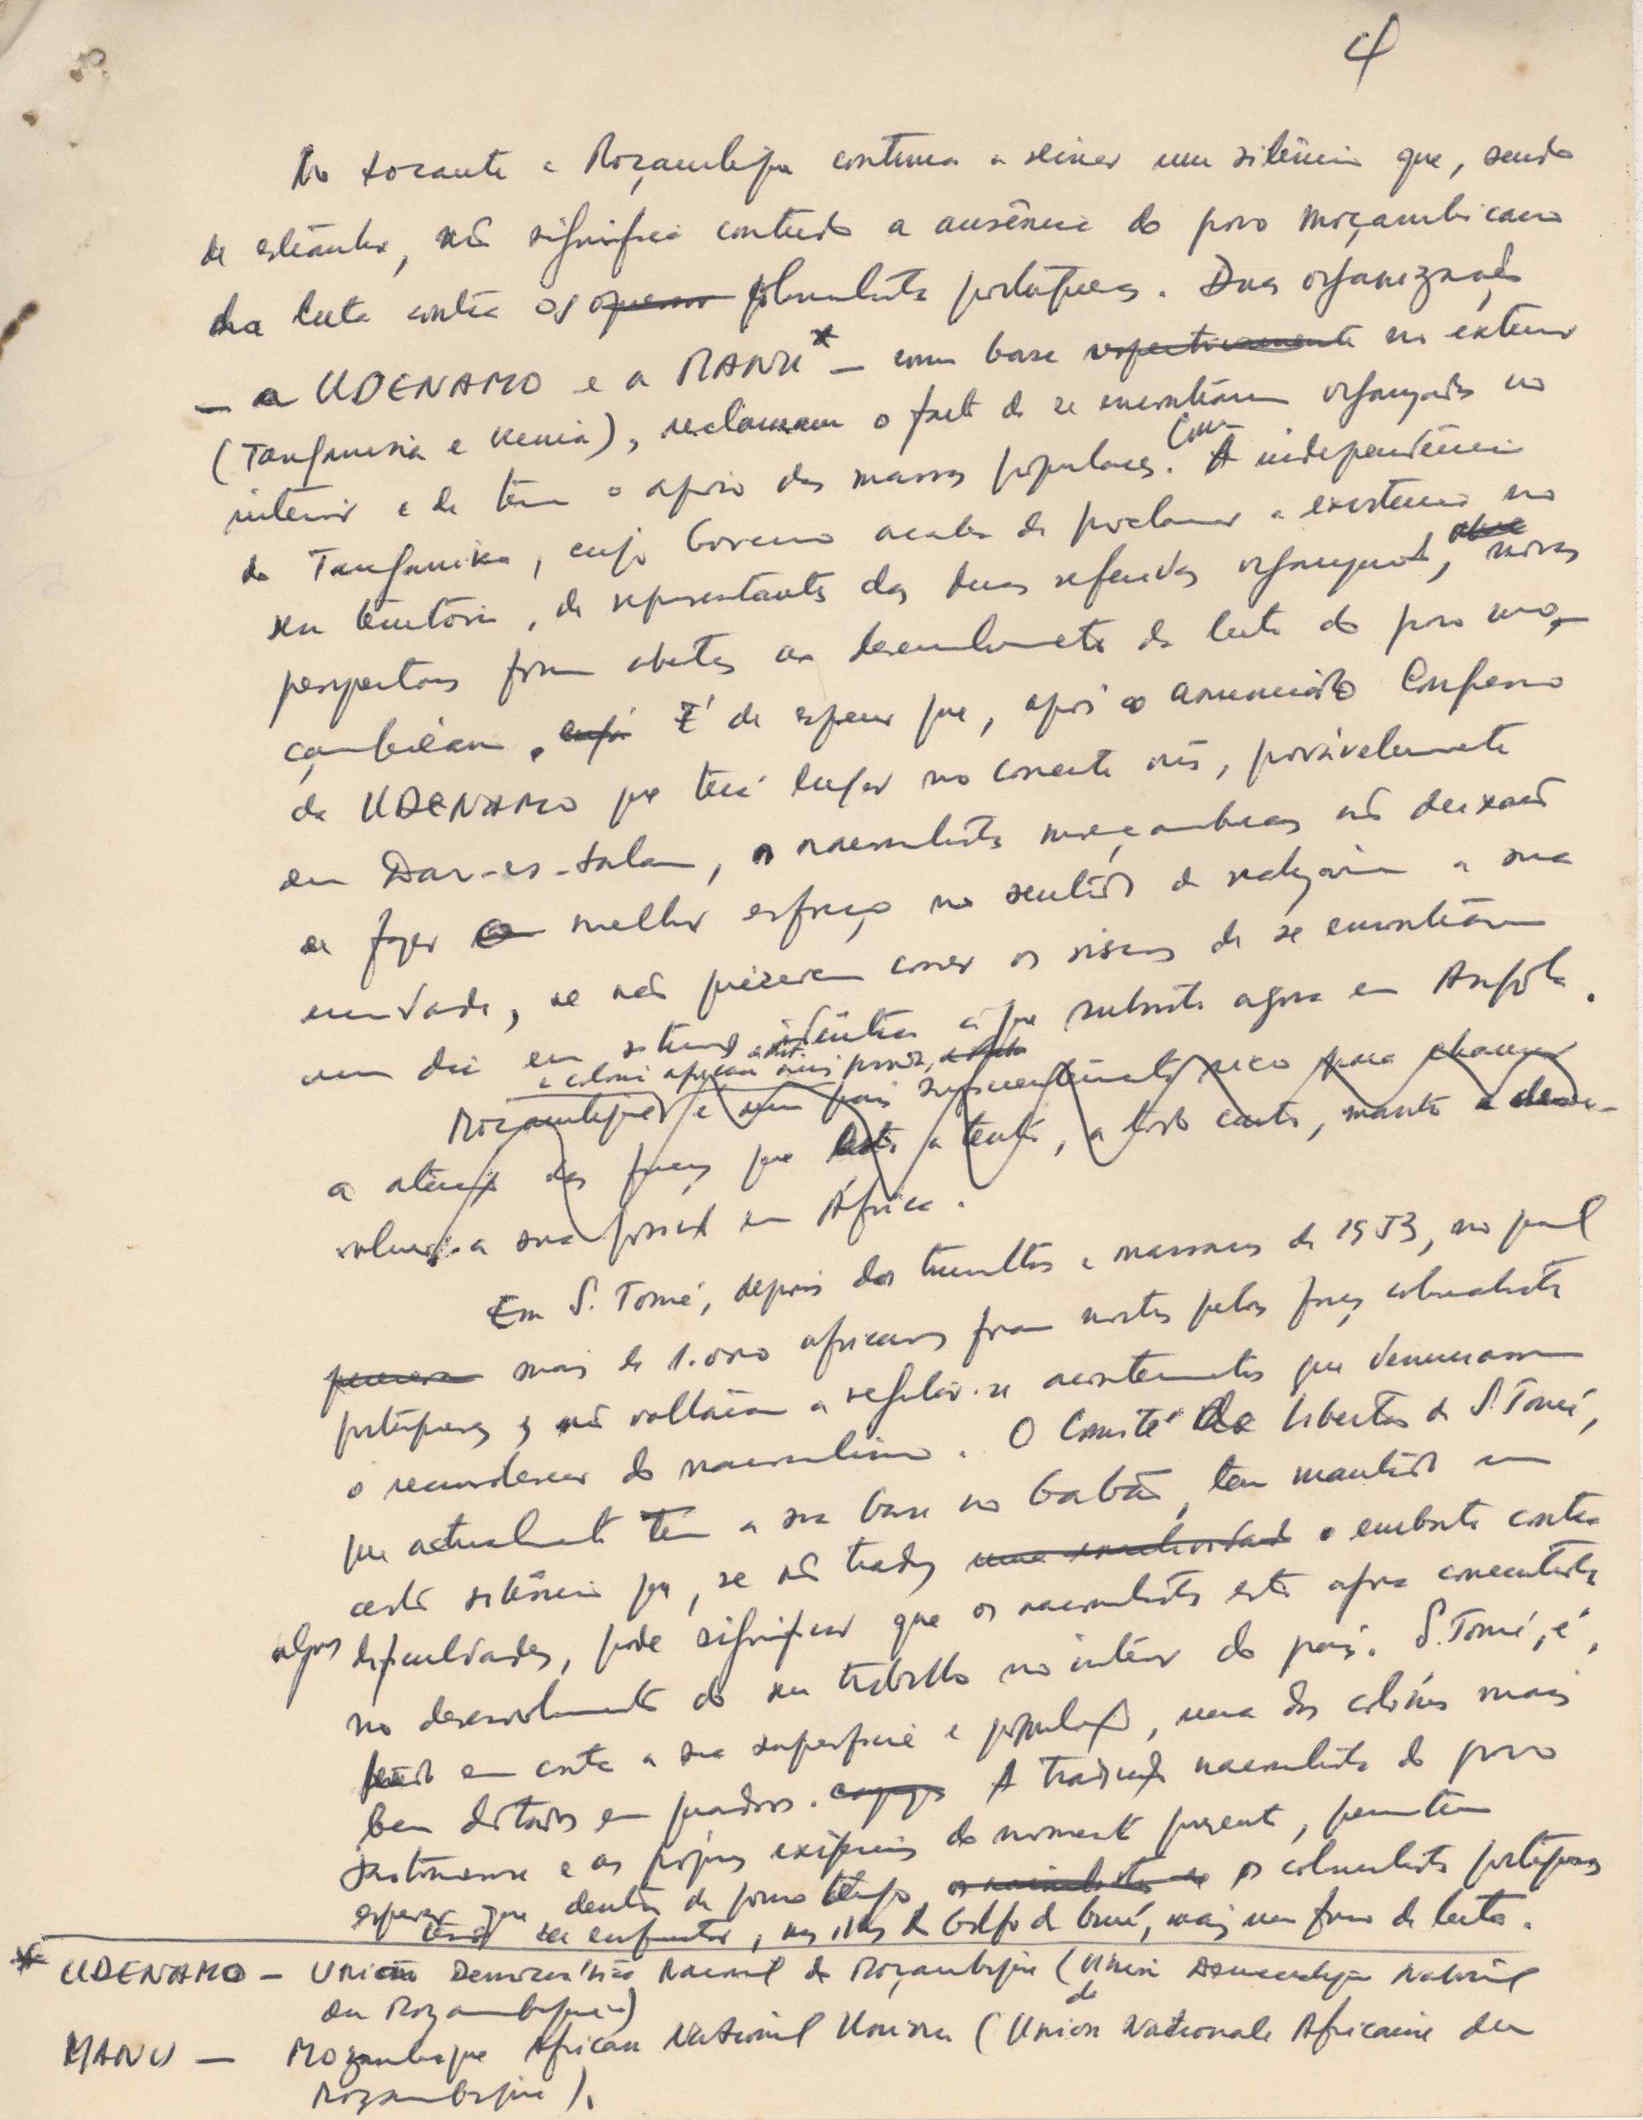 4
No tocante a Moçambique continua a reinar um silêncio que, sendo
de estranhar, não significa contudo a ausência do povo moçambicano
da luta contra os colonialistas portugueses. Duas organizações
— a UDENAMO e a MANU* — com base respectivamente no exterior
(Tanganica e Kenia), reclamam o facto de se encontrarem organizados no
interior e de têm o apoio das massas populares. Com A independência
do Tanganika, cujo Governo acaba de proclamar a existencia no
seu território, de representantes das duas referidas organizações, novas
perspectivas foram abertas ao desenvolvimento da luta do povo mo-
çambicano. É de esperar que, após o anunciado Congresso
da UDENAMO que terá lugar no corrente mês, provàvelmente
em Dar-es-Salam, os nacionalistas moçambicanos não deixarão
de fazer o melhor esforço no sentido de realizarem a sua
unidade, se não quizerem correr os riscos de se encontrarem
um dia em situação idêntica à que subsiste agora em Angola.
a colonia africana mais
Moçambique é um país suficientemente rico para chamar
a atenção das forças que a tentar, a todo custo, manter e desen-
volver a sua posição em África.
Em S. Tomé, depois dos tumultos e massacres de 1953, no qual
mais de 1.000 africanos foram mortos pelas forças colonialistas
portuguesas, não voltaram a registar-se acontecimentos que denunciassem
o recrudescer do nacionalismo. O Comité de Libertação de S. Tomé,
que actualmente tem a sua base no Gabão, tem mantido um
certo silêncio que, se não traduz uma inactividade o embate contra
algumas dificuldades, pode significar que os nacionalistas estão agora concentrados
no desenvolvimento do seu trabalho no interior do país. S. Tomé, é,
tendo em conta a sua superfície e população, uma das colónias mais
bem dotadas em quadros. A tradição nacionalista do povo
santomense e as próprias exigências do momento presente, permitem
esperar que dentro de pouco tempo os colonialistas portugueses
terão de enfrentar, nas ilhas do Golfo da Guiné, mais uma frente de luta.
* UDENAMO — União Democrática Nacional de Moçambique (Union Démocratique National
du Mozambique)
MANU — Mozambique African National Union (Union Nationale Africaine du
Mozambique).